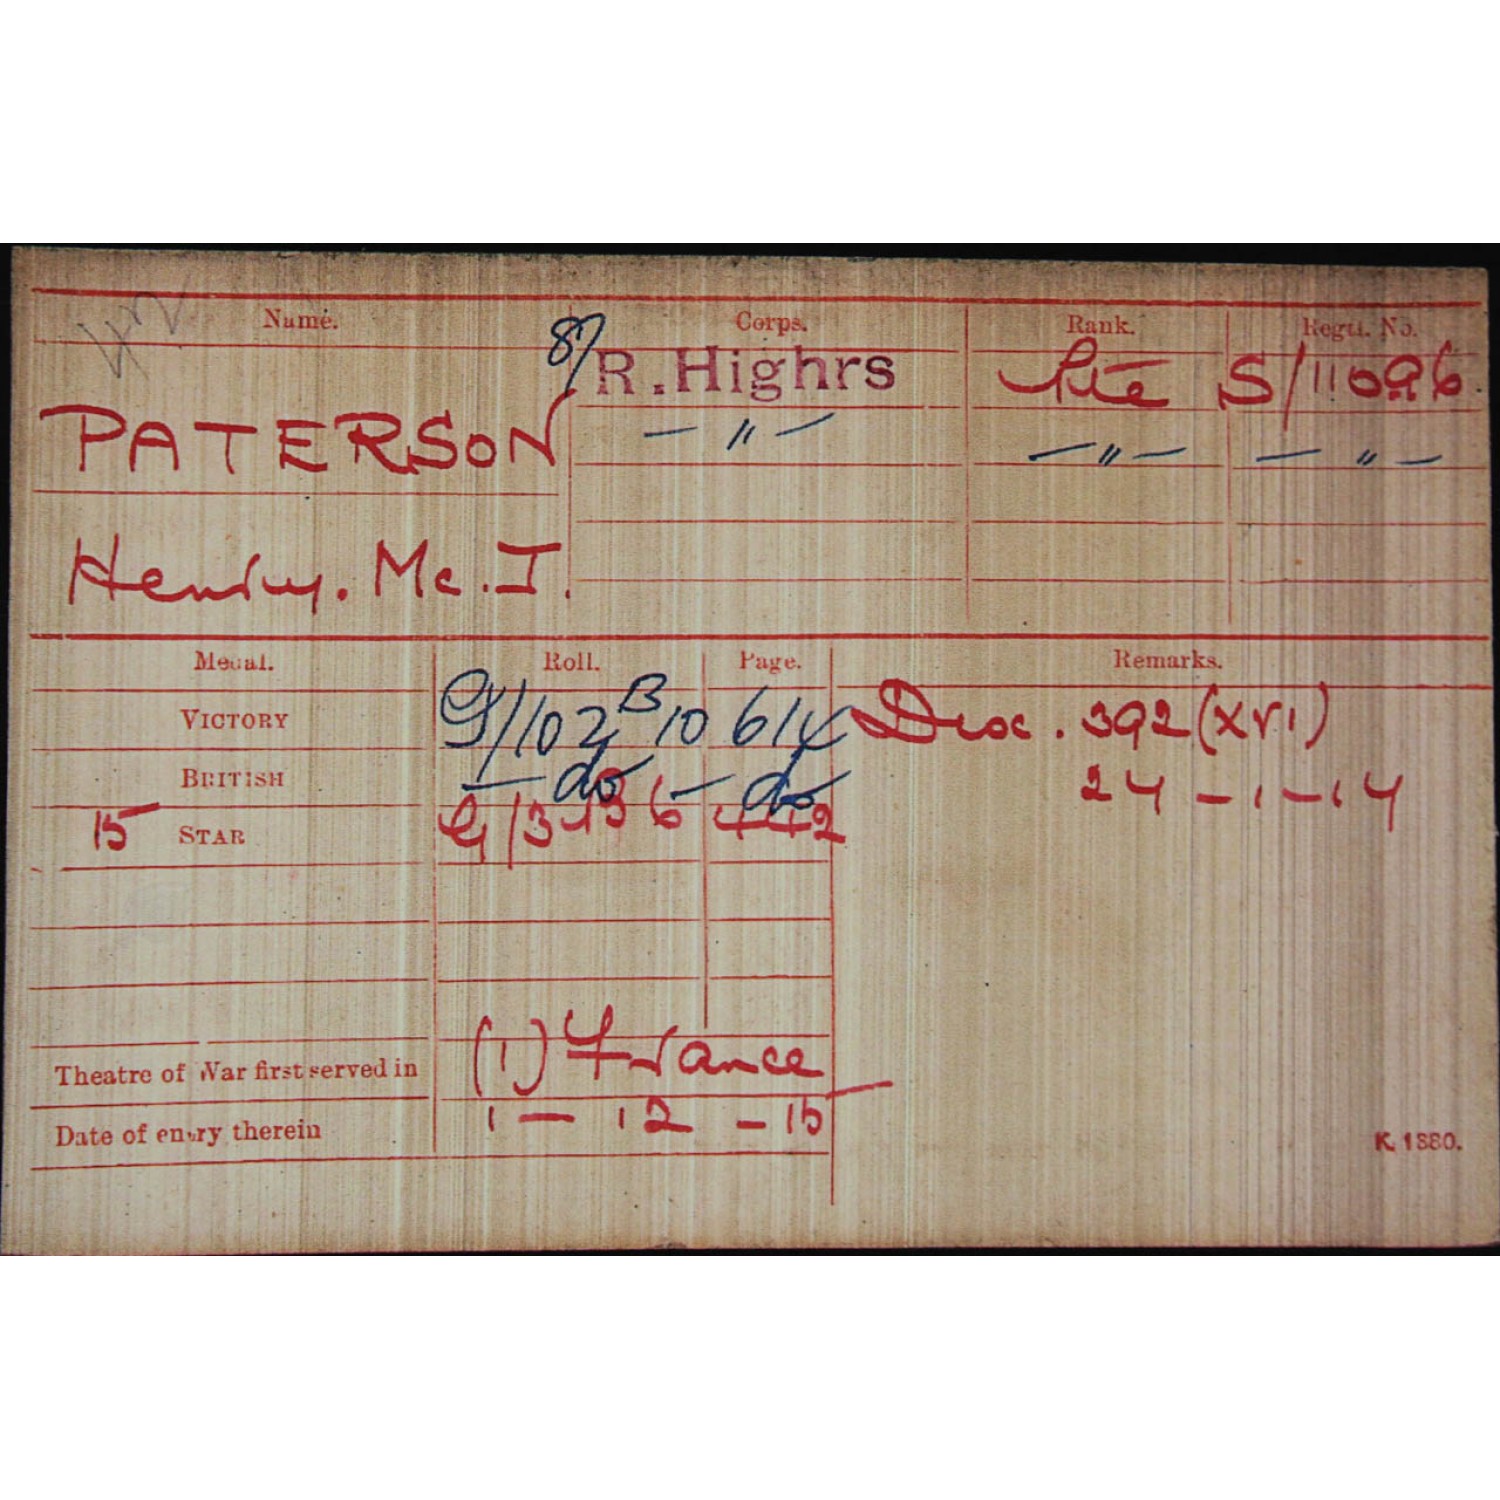 42
Name. Corps. Rank. Regtl. No.
8/ R.Highrs Pte S/11096
PATERSON — " — — " — — " —
Henry. Mc. I.
Medal. Roll. Page. Remarks.
VICTORY G/102 B10 614 Disc. 392 (XVI)
BRITISH — do — do 24 - 1 - 14
15 STAR G/3 B 6 442
Theatre of War first served in (1) France
Date of entry therein 1 — 12 - 15
K. 1380.